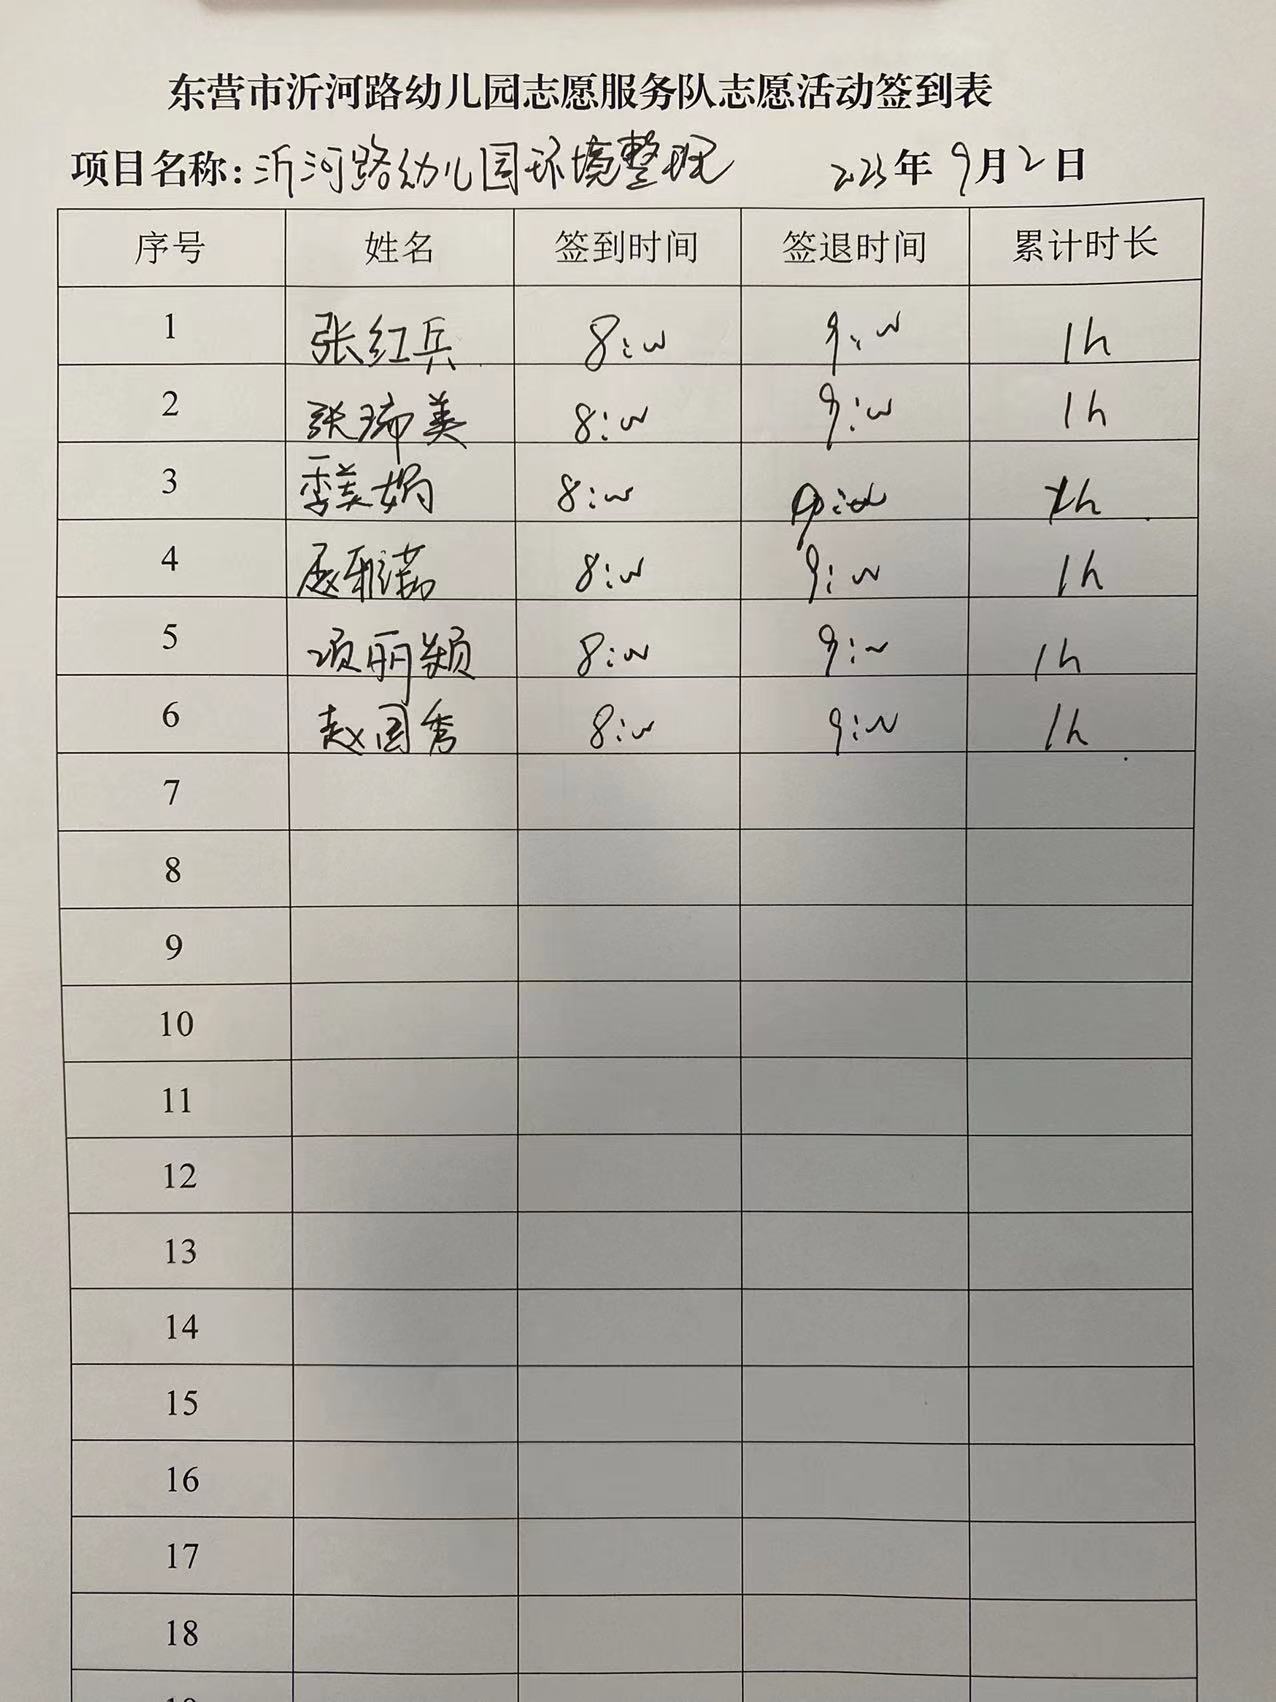 东营市沂河路幼儿园志愿服务队志愿活动签到表
项目名称:沂河路幼儿园环境整理 2023年9月2日
序号 姓名 签到时间 签退时间 累计时长
1 张红兵 8:00 9:00 1h
2 张瑞美 8:00 9:00 1h
3 季美娟 8:00 9:00 1h
4 8:00 9:00 1h
5 项丽颖 8:00 9:00 1h
6 赵国秀 8:00 9:00 1h
7
8
9
10
11
12
13
14
15
16
17
18